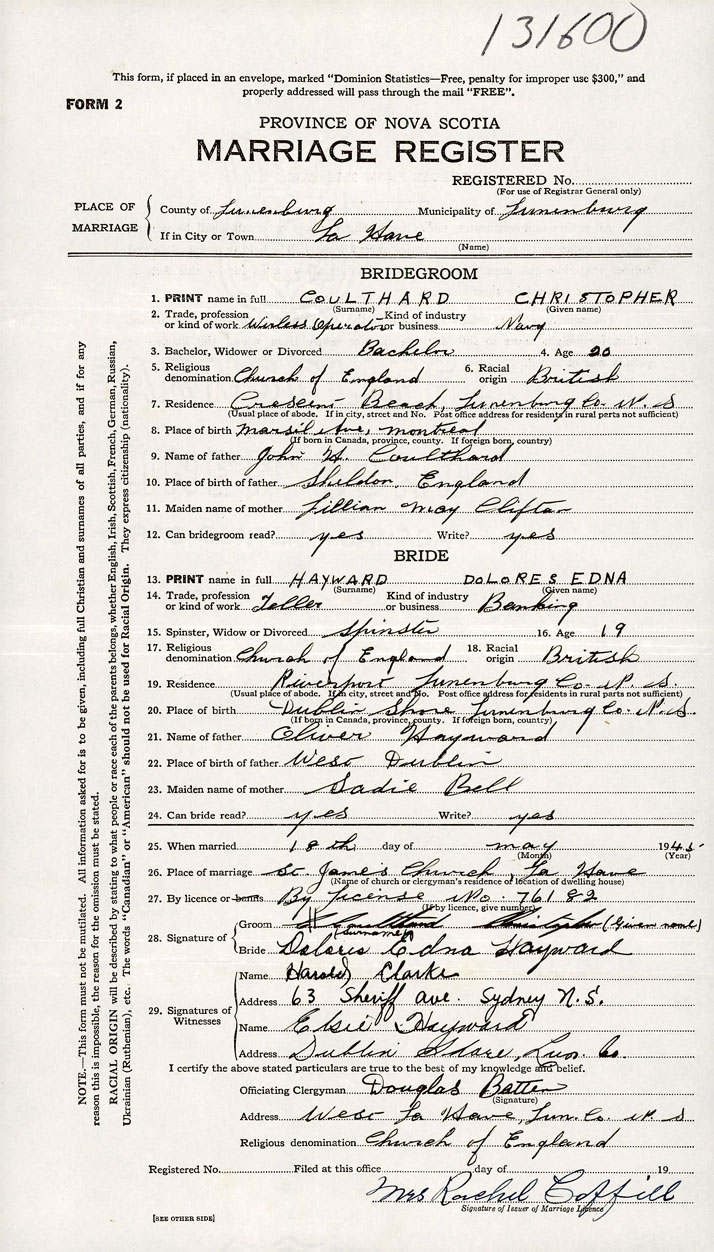 131600
This form, if placed in an envelope, marked "Dominion Statistics—Free, penalty for improper use $300," and
properly addressed will pass through the mail "FREE".
FORM 2
PROVINCE OF NOVA SCOTIA
MARRIAGE REGISTER
REGISTERED No.
(For use of Registrar General only)
PLACE OF MARRIAGE
County of Lunenburg Municipality of Lunenburg
If in City or Town La Have
(Name)
BRIDEGROOM
1. PRINT name in full COULTHARD CHRISTOPHER
(Surname) (Given name)
2. Trade, profession or kind of work Wireless Operator Kind of industry or business Navy
3. Bachelor, Widower or Divorced Bachelor 4. Age 20
5. Religious denomination Church of England 6. Racial origin British
7. Residence Crescent Beach, Lunenburg Co. N.S
(Usual place of abode. If in city, street and No. Post office address for residents in rural parts not sufficient)
8. Place of birth Marsil Ave, Montreal
(If born in Canada, province, county. If foreign born, country)
9. Name of father John H. Coulthard
10. Place of birth of father Sheldon, England
11. Maiden name of mother Lillian May Clifton
12. Can bridegroom read? yes Write? yes
BRIDE
13. PRINT name in full HAYWARD DOLORES EDNA
(Surname) (Given name)
14. Trade, profession or kind of work Teller Kind of industry or business Banking
15. Spinster, Widow or Divorced Spinster 16. Age 19
17. Religious denomination Church of England 18. Racial origin British
19. Residence Riverport Lunenburg Co. N.S.
(Usual place of abode. If in city, street and No. Post office address for residents in rural parts not sufficient)
20. Place of birth Dublin Shore Lunenburg Co. N.S.
(If born in Canada, province, county. If foreign born, country)
21. Name of father Oliver Hayward
22. Place of birth of father West Dublin
23. Maiden name of mother Sadie Bell
24. Can bride read? yes Write? yes
25. When married 18th day of May 1945
(Month) (Year)
26. Place of marriage St. James Church, La Have
(Name of church or clergyman's residence of location of dwelling house)
27. By licence or banns By license No. 76182
(If by licence, give number)
28. Signature of
Groom Coulthard Christopher (Given name)
(Surname)
Bride Dolores Edna Hayward
29. Signatures of Witnesses
Name Harold Clarke
Address 63 Sheriff ave. Sydney N.S.
Name Elsie Hayward
Address Dublin Shore, Lun. Co.
I certify the above stated particulars are true to the best of my knowledge and belief.
Officiating Clergyman Douglas Batten
(Signature)
Address West La Have, Lun. Co. N.S
Religious denomination Church of England
Registered No. Filed at this office day of 19
Mrs Rachel Coffill
Signature of Issuer of Marriage Licence
[SEE OTHER SIDE]
NOTE.—This form must not be mutilated. All information asked for is to be given, including full Christian and surnames of all parties, and if for any
reason this is impossible, the reason for the omission must be stated.
RACIAL ORIGIN will be described by stating to what people or race each of the parents belongs, whether English, Irish, Scottish, French, German, Russian,
Ukrainian (Ruthenian), etc. The words "Canadian" or "American" should not be used for Racial Origin. They express citizenship (nationality).